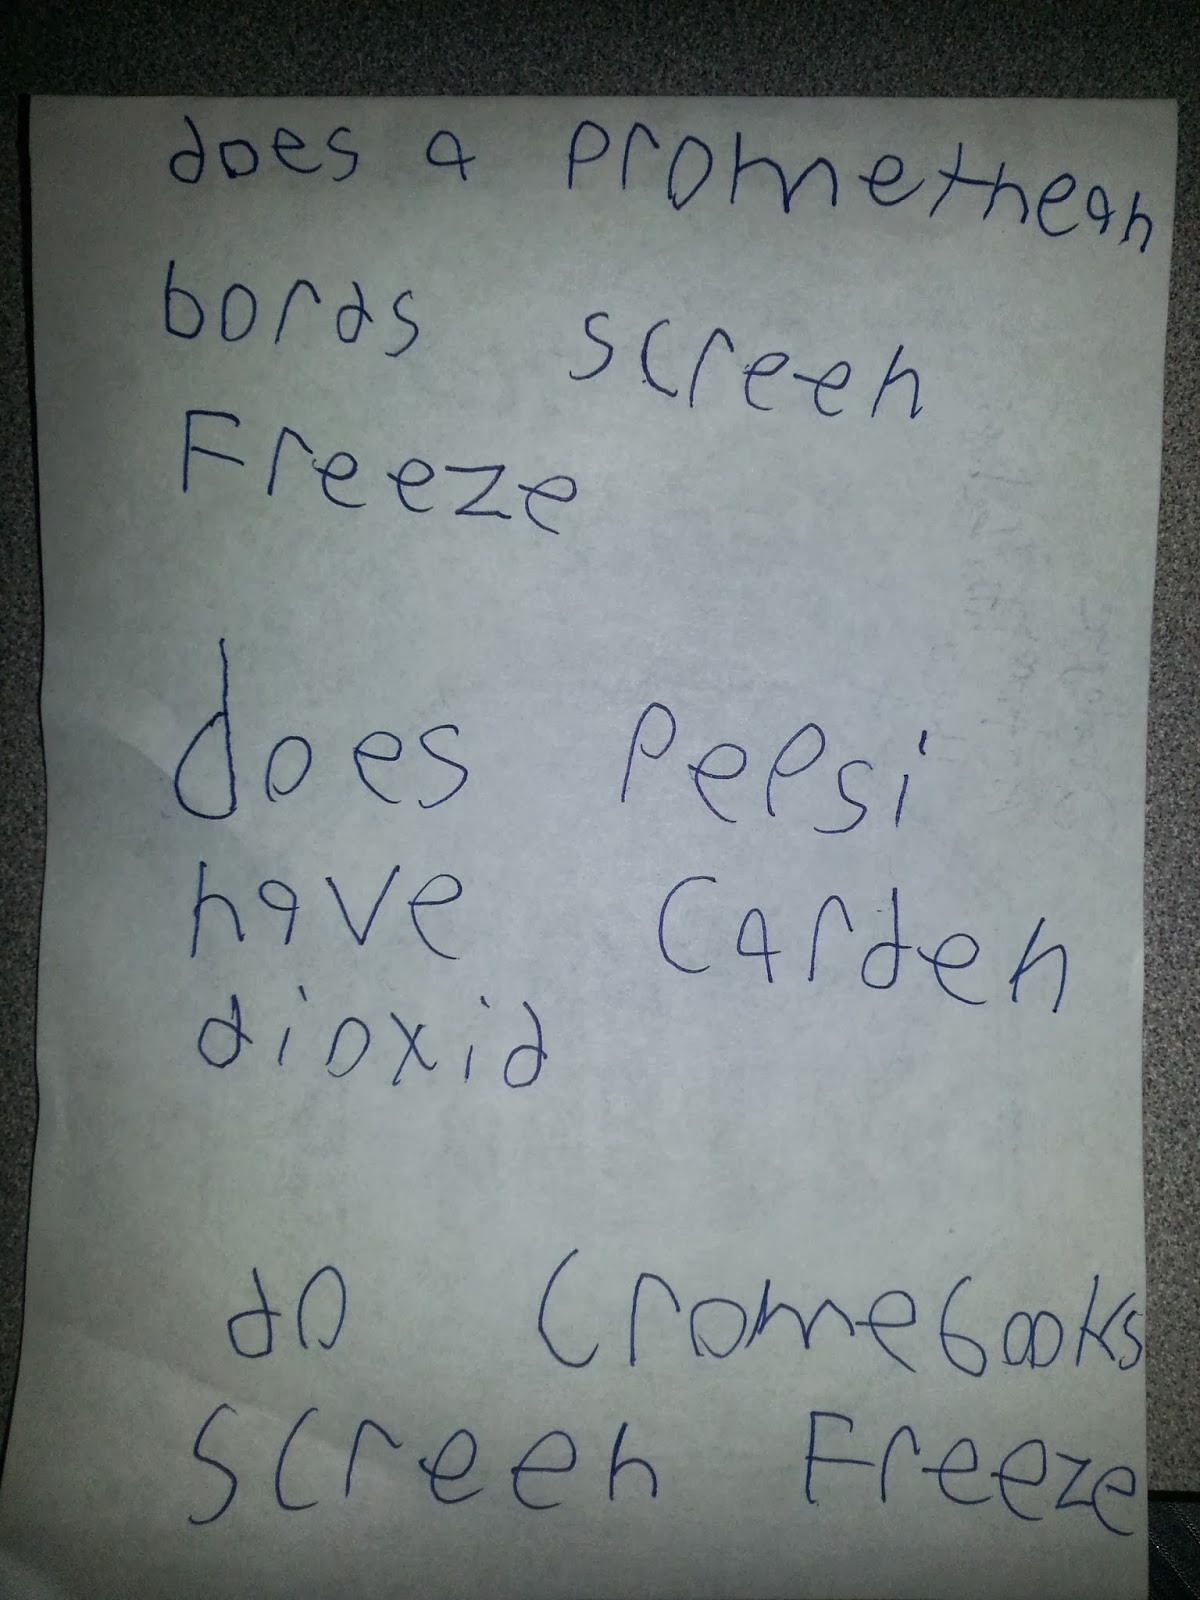 does a promethean
bords screen
Freeze
does Pepsi
have Carden
dioxid
do Cromebooks
screen Freeze